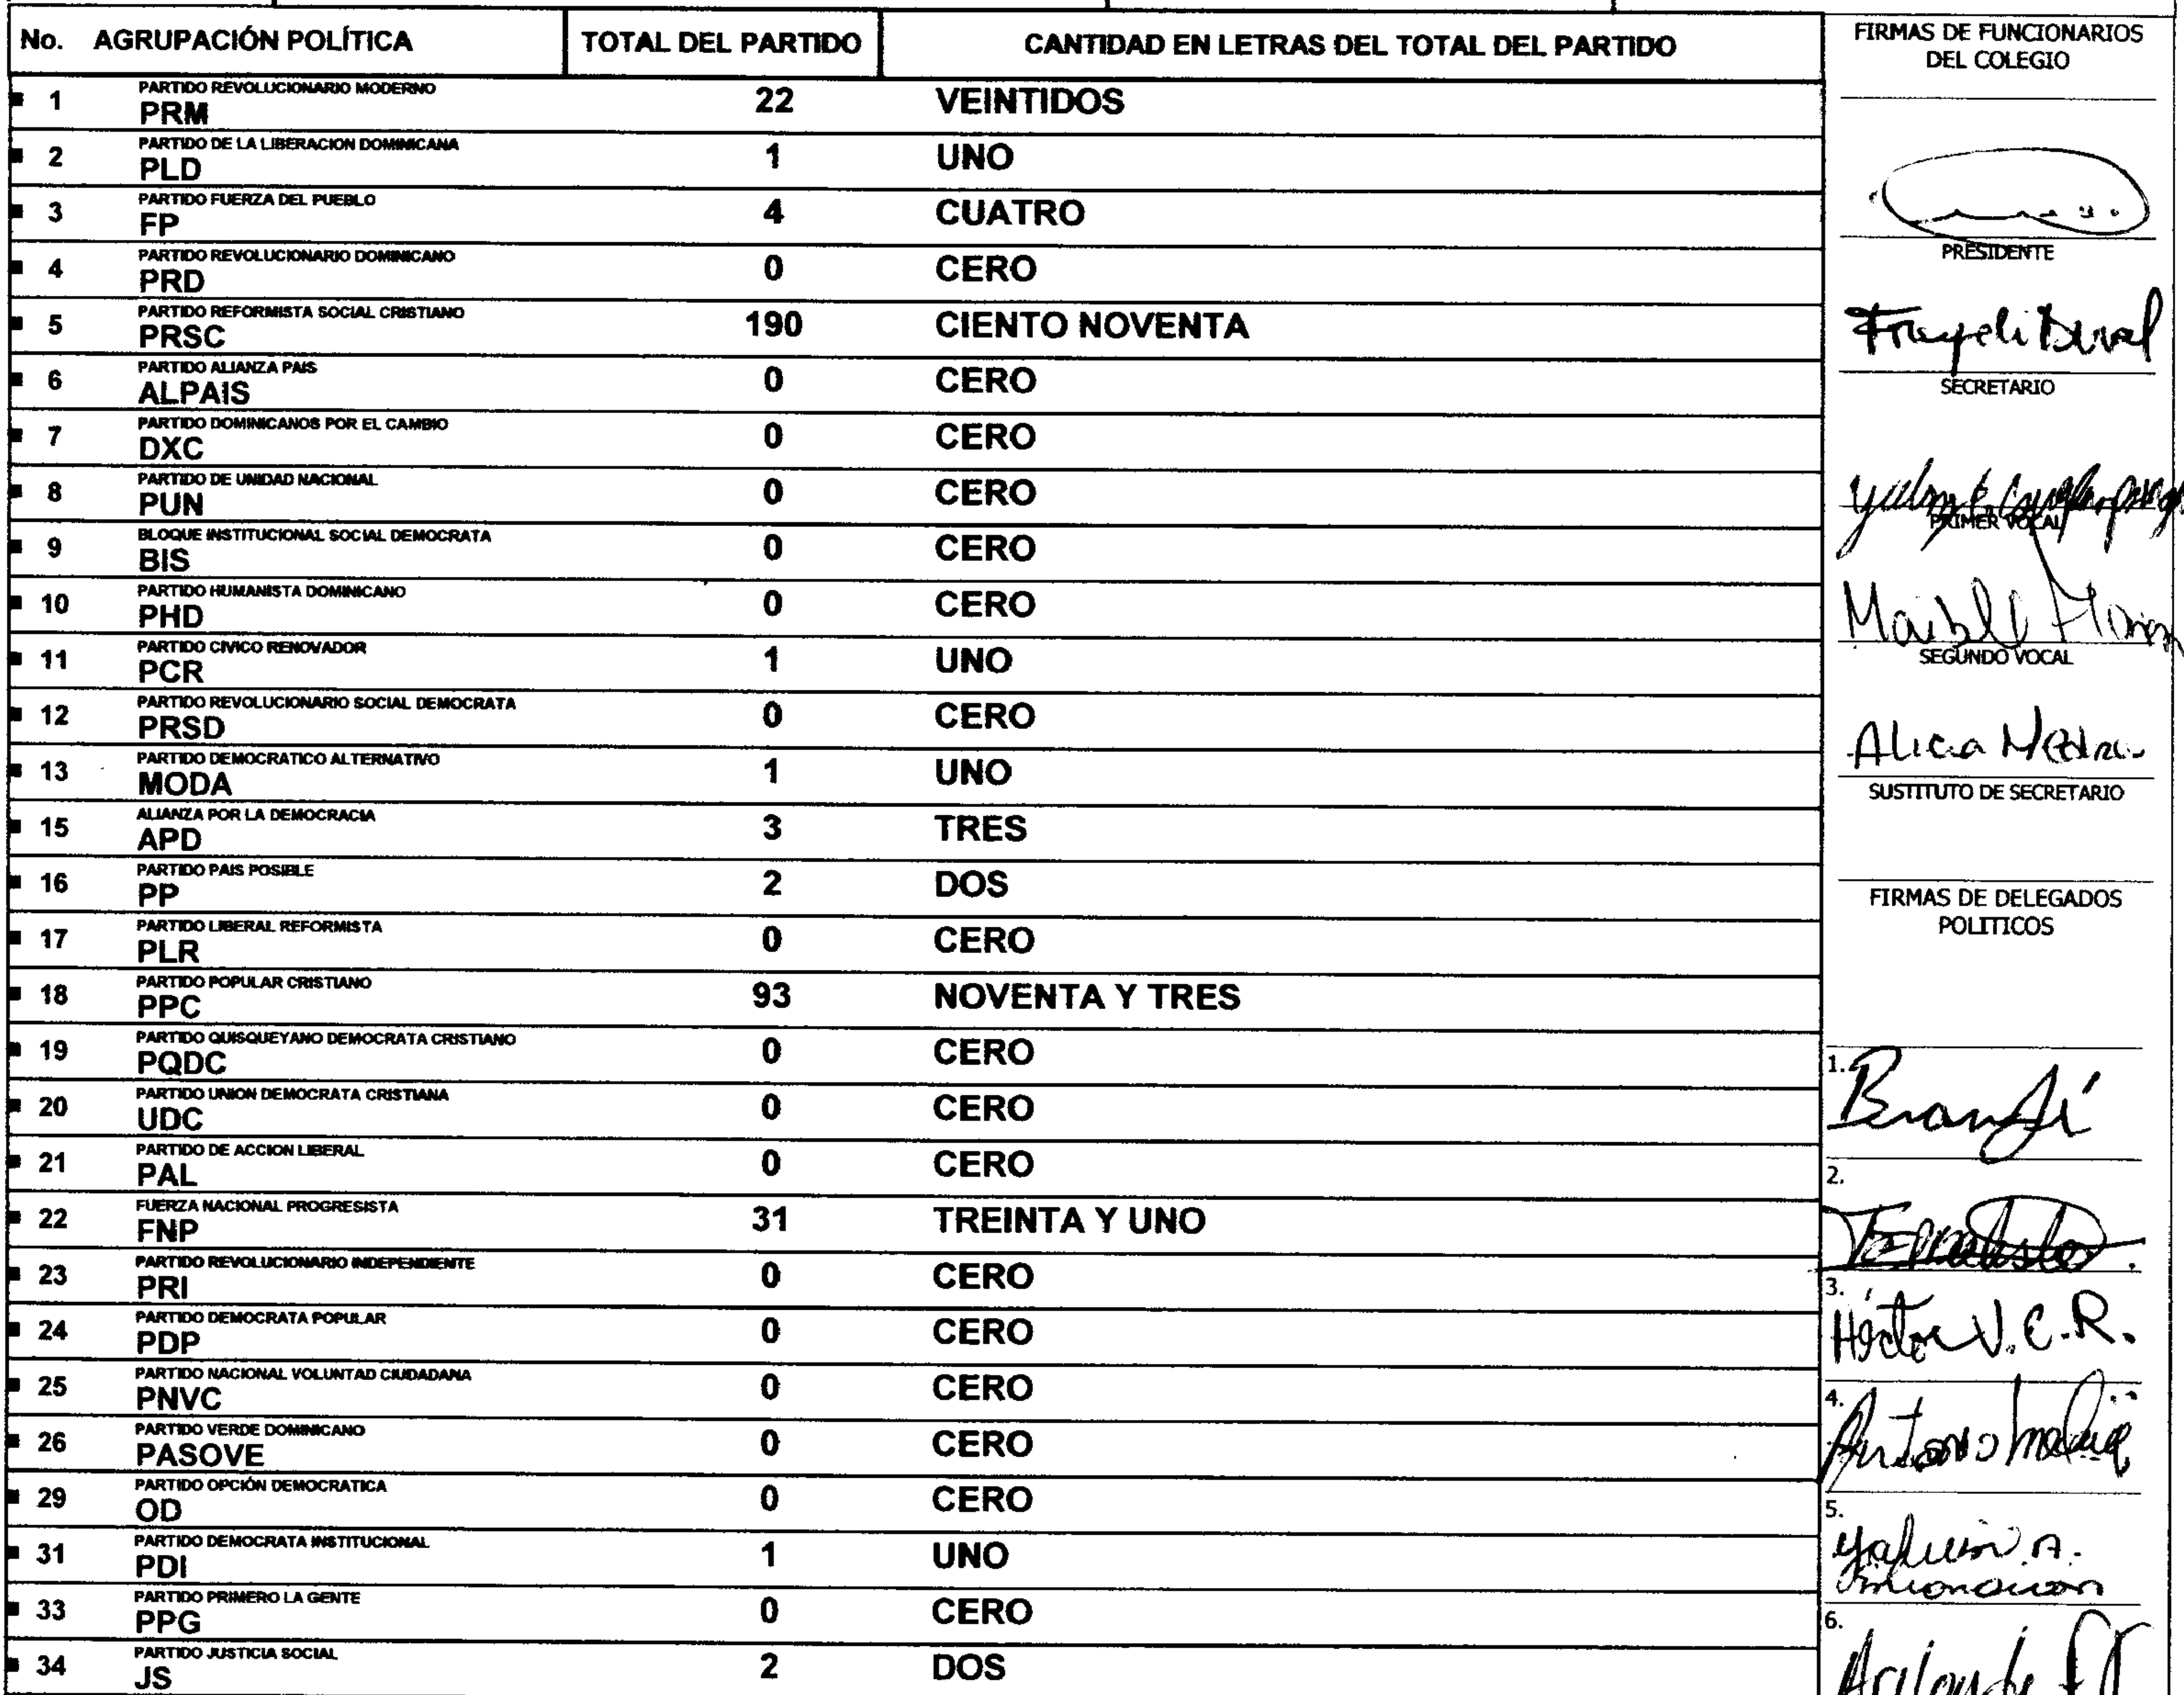 No. AGRUPACIÓN POLÍTICA TOTAL DEL PARTIDO CANTIDAD EN LETRAS DEL TOTAL DEL PARTIDO
PARTIDO REVOLUCIONARIO MODERNO
1 PRM 22 VEINTIDOS
PARTIDO DE LA LIBERACION DOMINICANA
2 PLD 1 UNO
PARTIDO FUERZA DEL PUEBLO
3 FP 4 CUATRO
PARTIDO REVOLUCIONARIO DOMINICANO
4 PRD 0 CERO
PARTIDO REFORMISTA SOCIAL CRISTIANO
5 PRSC 190 CIENTO NOVENTA
PARTIDO ALIANZA PAIS
6 ALPAIS 0 CERO
PARTIDO DOMINICANOS POR EL CAMBIO
7 DXC 0 CERO
PARTIDO DE UNIDAD NACIONAL
8 PUN 0 CERO
BLOQUE INSTITUCIONAL SOCIAL DEMOCRATA
9 BIS 0 CERO
PARTIDO HUMANISTA DOMINICANO
10 PHD 0 CERO
PARTIDO CIVICO RENOVADOR
11 PCR 1 UNO
PARTIDO REVOLUCIONARIO SOCIAL DEMOCRATA
12 PRSD 0 CERO
PARTIDO DEMOCRATICO ALTERNATIVO
13 MODA 1 UNO
ALIANZA POR LA DEMOCRACIA
15 APD 3 TRES
PARTIDO PAIS POSIBLE
16 PP 2 DOS
PARTIDO LIBERAL REFORMISTA
17 PLR 0 CERO
PARTIDO POPULAR CRISTIANO
18 PPC 93 NOVENTA Y TRES
PARTIDO QUISQUEYANO DEMOCRATA CRISTIANO
19 PQDC 0 CERO
PARTIDO UNION DEMOCRATA CRISTIANA
20 UDC 0 CERO
PARTIDO DE ACCION LIBERAL
21 PAL 0 CERO
FUERZA NACIONAL PROGRESISTA
22 FNP 31 TREINTA Y UNO
PARTIDO REVOLUCIONARIO INDEPENDIENTE
23 PRI 0 CERO
PARTIDO DEMOCRATA POPULAR
24 PDP 0 CERO
PARTIDO NACIONAL VOLUNTAD CIUDADANA
25 PNVC 0 CERO
PARTIDO VERDE DOMINICANO
26 PASOVE 0 CERO
PARTIDO OPCIÓN DEMOCRATICA
29 OD 0 CERO
PARTIDO DEMOCRATA INSTITUCIONAL
31 PDI 1 UNO
PARTIDO PRIMERO LA GENTE
33 PPG 0 CERO
PARTIDO JUSTICIA SOCIAL
34 JS 2 DOS
FIRMAS DE FUNCIONARIOS
DEL COLEGIO
PRESIDENTE
SECRETARIO
PRIMER VOCAL
SEGUNDO VOCAL
Alicia
SUSTITUTO DE SECRETARIO
FIRMAS DE DELEGADOS
POLITICOS
1.
2.
3.
Héctor V.C.R.
4.
5.
6.